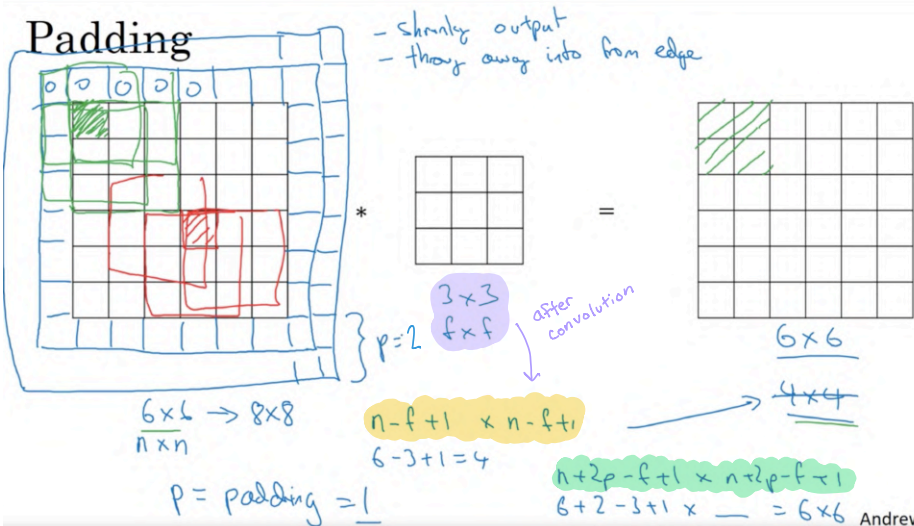 Padding
- shrinky output
- throw away info from edge
0 0 0 0 0
*
=
3 × 3
f × f
after
convolution
p=2
6 × 6
4 × 4
6 × 6 → 8 × 8
n × n
n-f+1 × n-f+1
6-3+1=4
n+2p-f+1 × n+2p-f+1
6+2-3+1 × __ = 6×6
p = padding = 1
Andrew